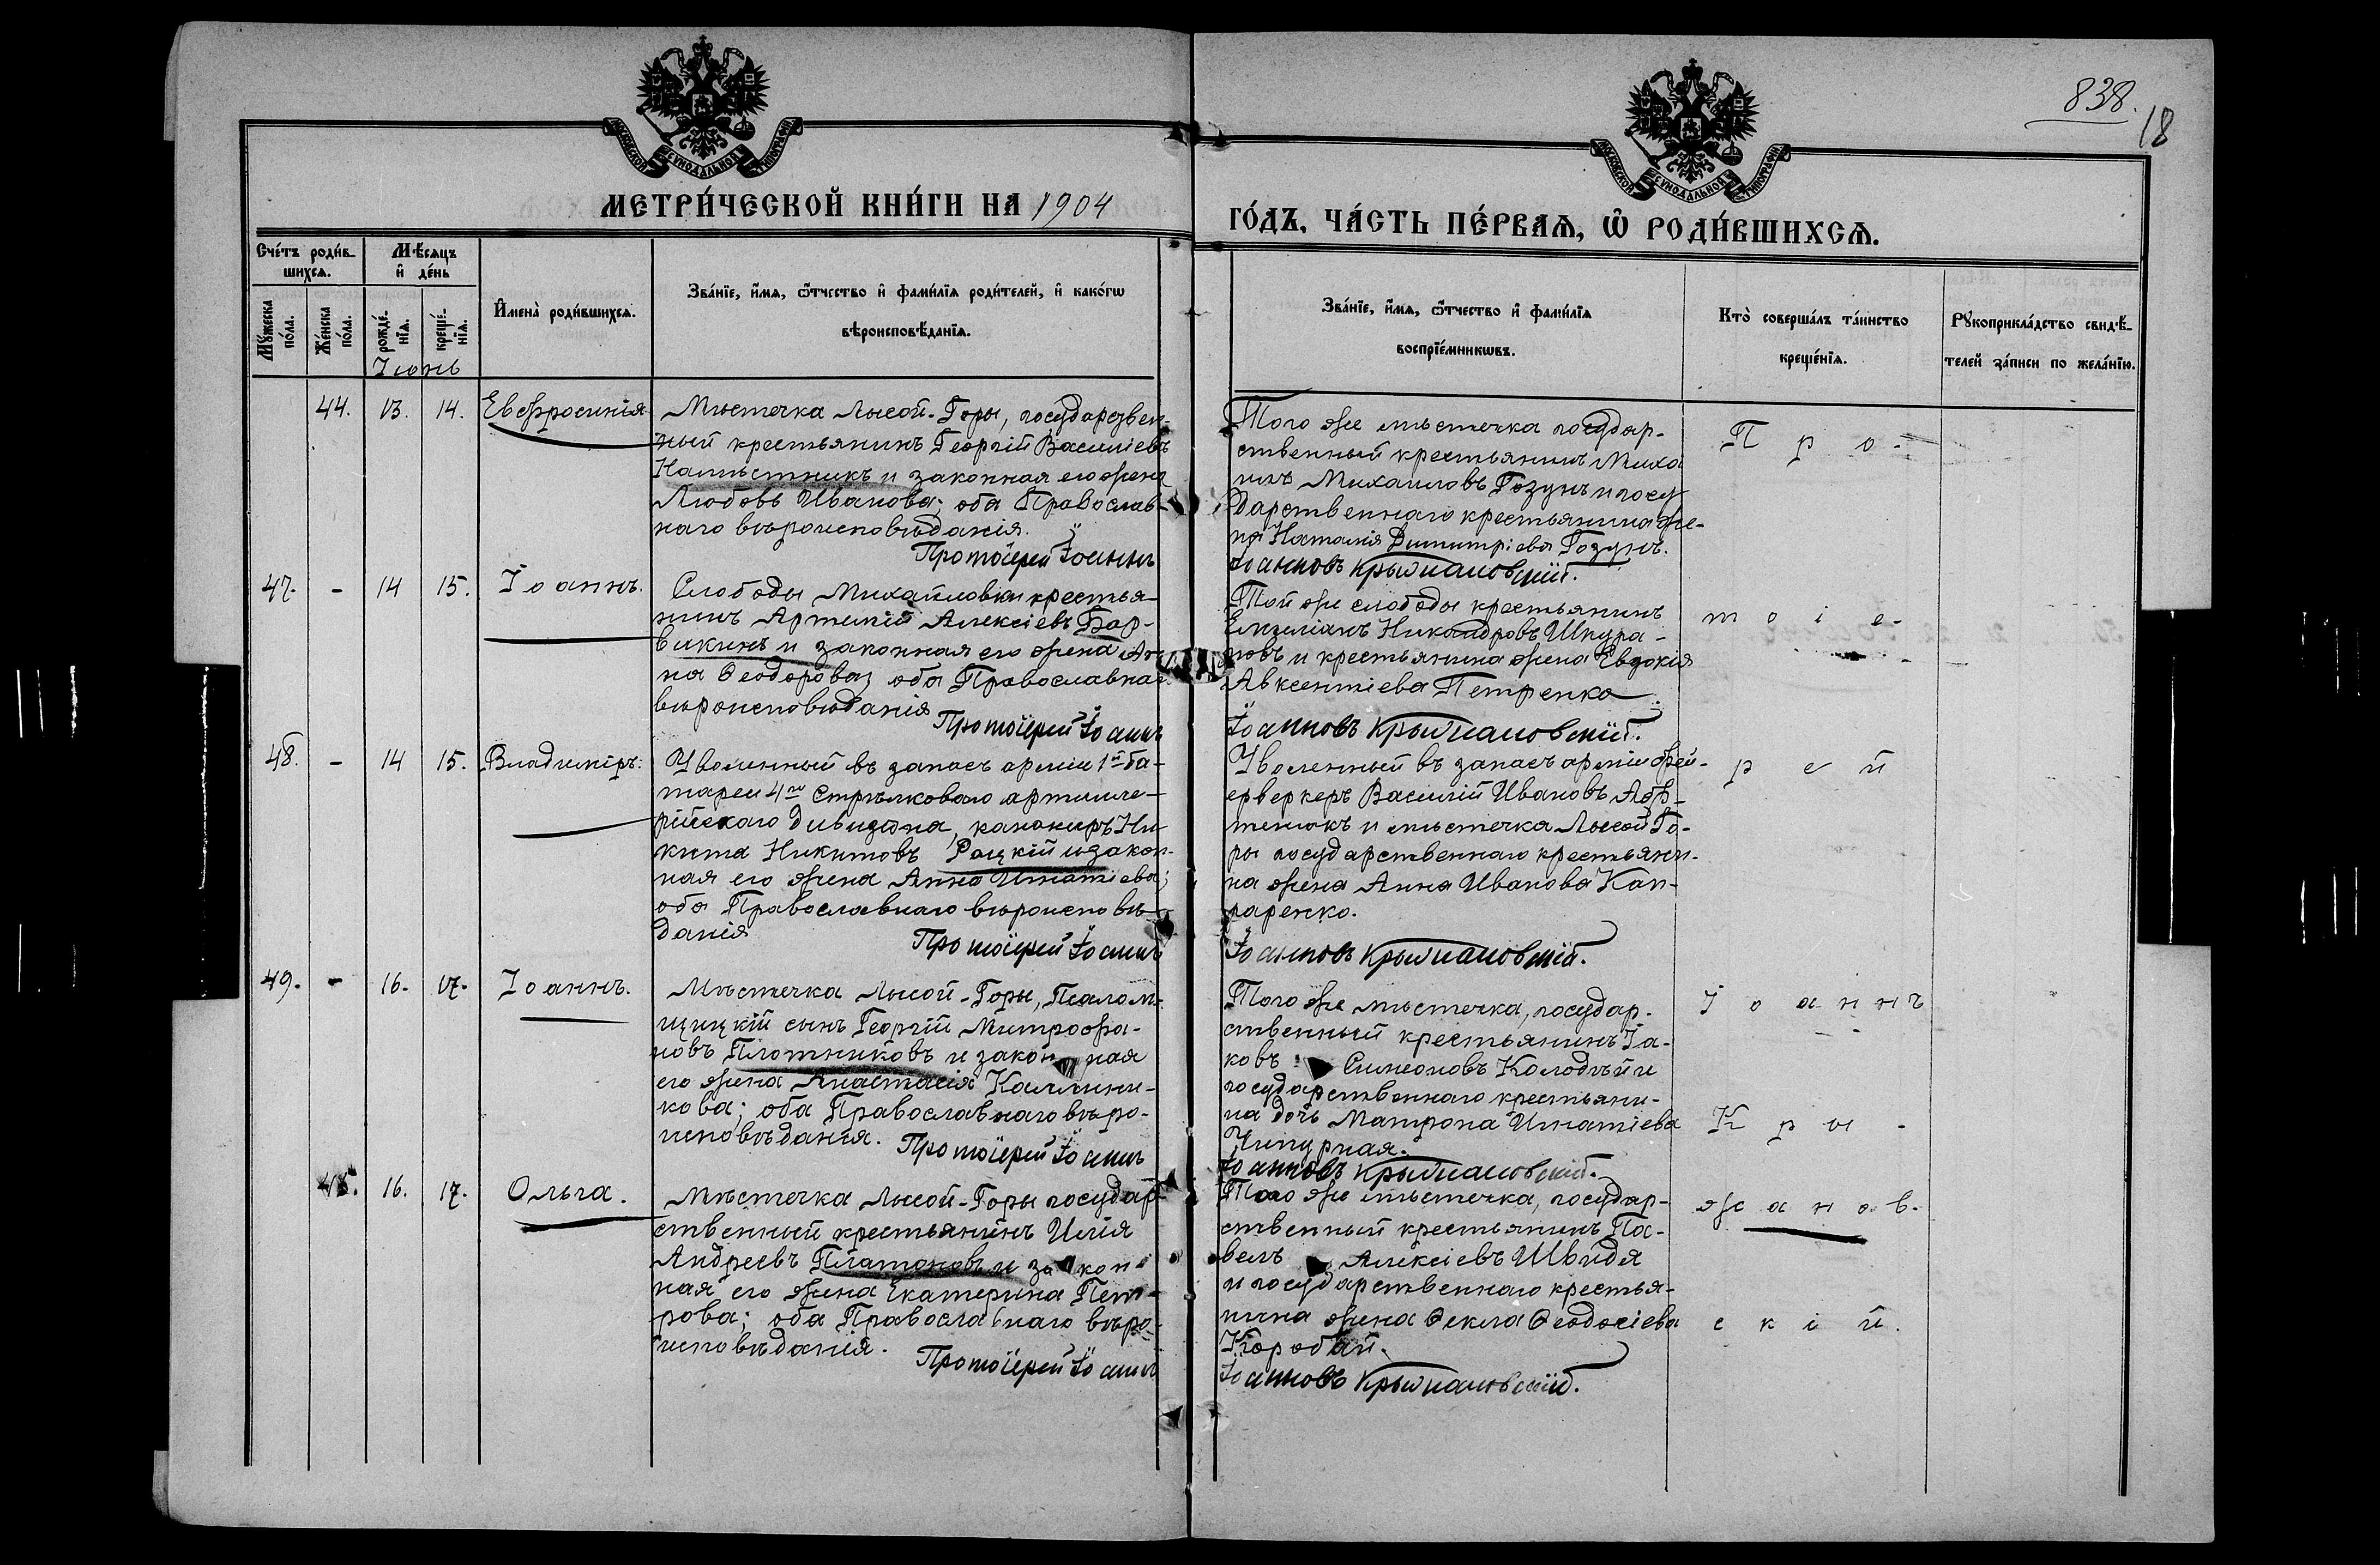 838.
18
МОСКОВСКОЙ СѴНОДАЛЬНОЙ ТИПОГРАФІИ
МОСКОВСКОЙ СѴНОДАЛЬНОЙ ТИПОГРАФІИ
МЕТРИ́ЧЕСКОЙ КНИ́ГИ НА 1904
ГО́ДЪ, ЧА́СТЬ ПЕ́РВАѦ, Ѽ РОДИ́ВШИХСѦ.
Сче́тъ роди́в-
шихсѧ.
Мѣ́сѧцъ
и҆ де́нь
Мꙋ́жеска по́ла.
Же́нска по́ла.
рожде́-нїѧ.
креще́-нїѧ.
Іюнь
И҆мена̀ роди́вшихсѧ.
Зва́нїе, и҆́мѧ, ѻ҆́тчество и҆ фами́лїѧ роди́телей, и҆ како́гѡ
вѣроисповѣ́данїѧ.
Зва́нїе, и҆́мѧ, ѻ҆́тчество и҆ фами́лїѧ
воспрїе́мникѡвъ.
Кто̀ соверша́лъ та́инство
креще́нїѧ.
Рꙋкоприкла́дство свидѣ́-
телей за́писи по жела́нїю.
44. 13. 14. Евфросинія
Мѣстечка Лысой-Горы, государствен-
ный крестьянинъ Георгій Василіевъ
Намѣстникъ и законная его жена
Любовь Иванова; оба Православ-
наго вѣроисповѣданія.
Протоіерей Іоаннъ
Того же мѣстечка государ-
ственный крестьянинъ Миха
илъ Михаиловъ Гозунъ и госу
дарственнаго крестьянина же-
на Наталія Димитріева Гозунъ.
Іоанновъ Крыжановскій.
П р о -
47. - 14 15. Іоаннъ.
Слободы Михайловки крестья-
нинъ Артемій Алексіевъ Бар-
викинъ и законная его жена Ан-
на Ѳеодорова; оба Православнаго
вѣроисповѣданія
Протоіерей Іоаннъ
Той же слободы крестьянинъ
Емеліанъ Никандровъ Шкура-
повъ и крестьянина жена Евдокія
Авксентіева Петренко
Іоанновъ Крыжановскій.
т о і е -
48. - 14 15. Владиміръ.
Уволенный въ запасъ арміи 1й ба-
тареи 4го Стрѣлковаго артилле-
рійскаго дивизіона, канониръ Ни-
кита Никитовъ Рацкій и закон-
ная его жена Анна Игнатіева;
оба Православнаго вѣроисповѣ-
данія
Протоіерей Іоаннъ
Уволенный въ запасъ арміи фей-
ерверкеръ Василій Ивановъ
и мѣстечка Лысой Го-
ры государственнаго крестьяни-
на жена Анна Иванова Кап-
раренко.
Іоанновъ Крыжановскій.
р е й
49. - 16. 17. Іоаннъ.
Мѣстечка Лысой-Горы, Псалом-
щицкій сынъ Георгій Митрофа-
новъ Плотниковъ и законная
его жена Анастасія Каллини-
кова; оба Православнаго вѣро-
исповѣданія.
Протоіерей Іоаннъ
Того же мѣстечка, государ-
ственный крестьянинъ Іа-
ковъ Симеоновъ Колодѣй и
государственнаго крестьяни-
на дочь Матрона Игнатіева
Чипурная.
Іоанновъ Крыжановскій.
І о а н н ъ
К р ы -
45. 16. 17. Ольга.
Мѣстечка Лысой-Горы государ-
ственный крестьянинъ Илія
Андреевъ Платоновъ и закон-
ная его жена Екатерина Пет-
рова; оба Православнаго вѣро-
исповѣданія.
Протоіерей Іоаннъ
Того же мѣстечка, государ-
ственный крестьянинъ Па-
велъ Алексіевъ Швидя
и государственнаго крестья-
нина жена Ѳекла Ѳеодосіева
Коробай.
Іоанновъ Крыжановскій.
ж а н о в -
с к і й.